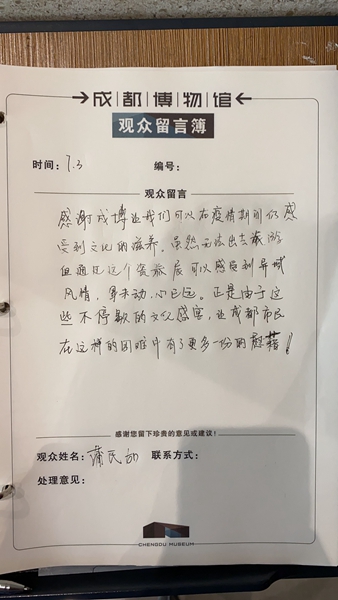 成都博物馆
观众留言簿
时间：7.3 编号：
观众留言
感谢成博让我们可以在疫情期间仍感
受到文化的滋养。虽然无法出去旅游
但通过这个展可以感受到异域
风情，身未动，心已远。正是由于这
些不停歇的文化盛宴，让成都市民
在这样的困难中有了更多一份的慰藉！
感谢您留下珍贵的意见或建议！
观众姓名：蒲民 联系方式：
处理意见：
CHENGDU MUSEUM